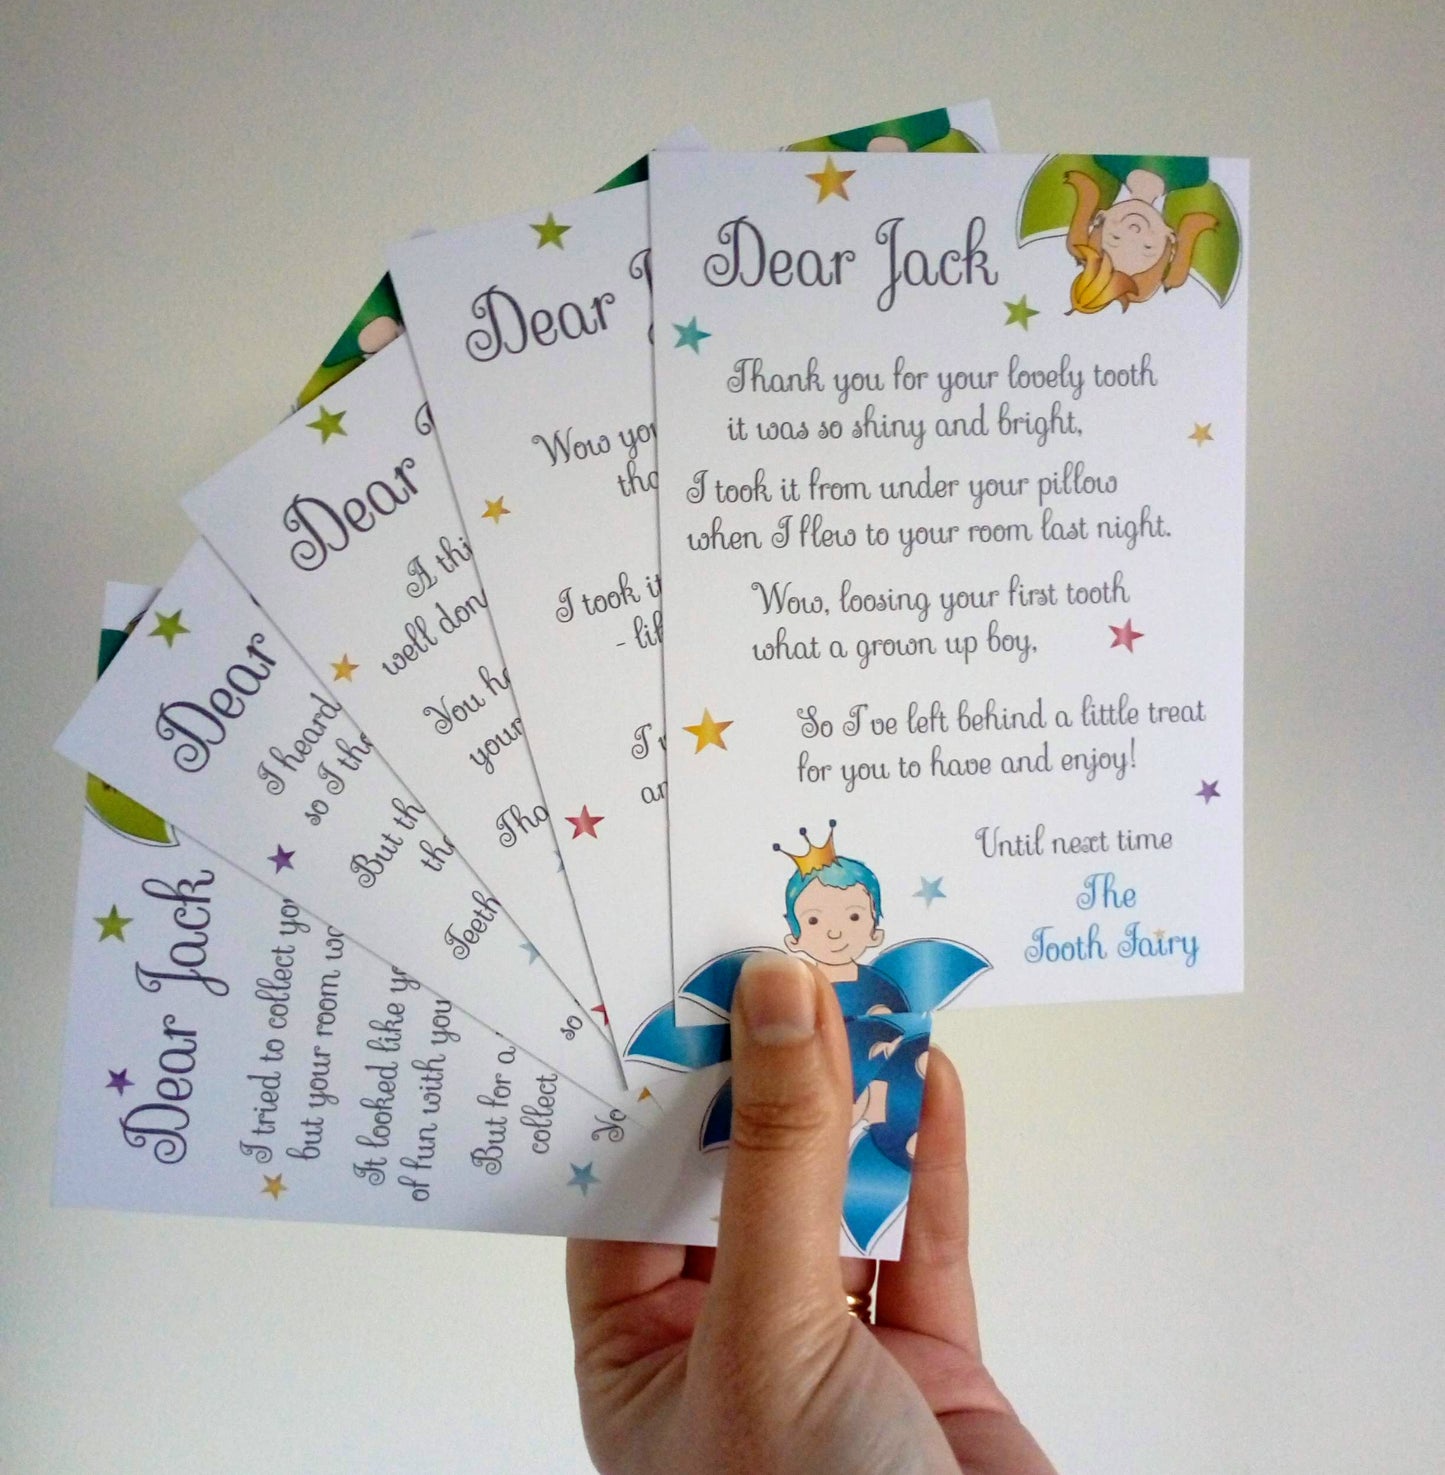 Dear Jack
Thank you for your lovely tooth
it was so shiny and bright,
I took it from under your pillow
when I flew to your room last night.
Wow, loosing your first tooth
what a grown up boy,
So I've left behind a little treat
for you to have and enjoy!
Until next time
The
Tooth Fairy
Dear
Wow you
I took it
Dear
A thi
well don
You
your
But th
Teeth
so
Dear
I heard
so I
Dear Jack
I tried to collect you
but your room
It looked like
of fun with you
But for a
collect